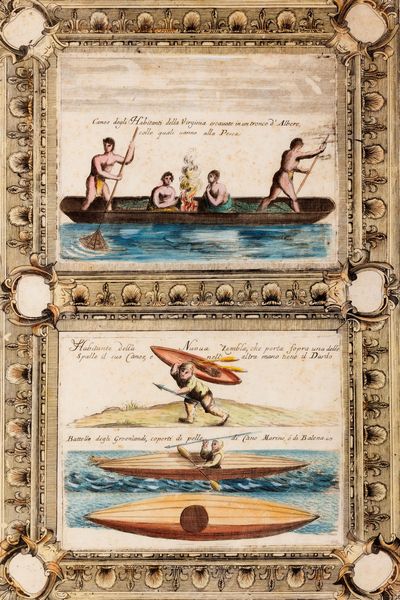 Canoe degli Habitanti della Virginia escavate in un tronco d'Albero,
colle quali vanno alla Pesca
Habitante della Nuova Zembla, che porta sopra una delle
Spalle il suo Canoe, e nell' altra mano tiene il Dardo
Battello degli Groenlandi, coperti di pelle di Cane Marino, ò di Balena